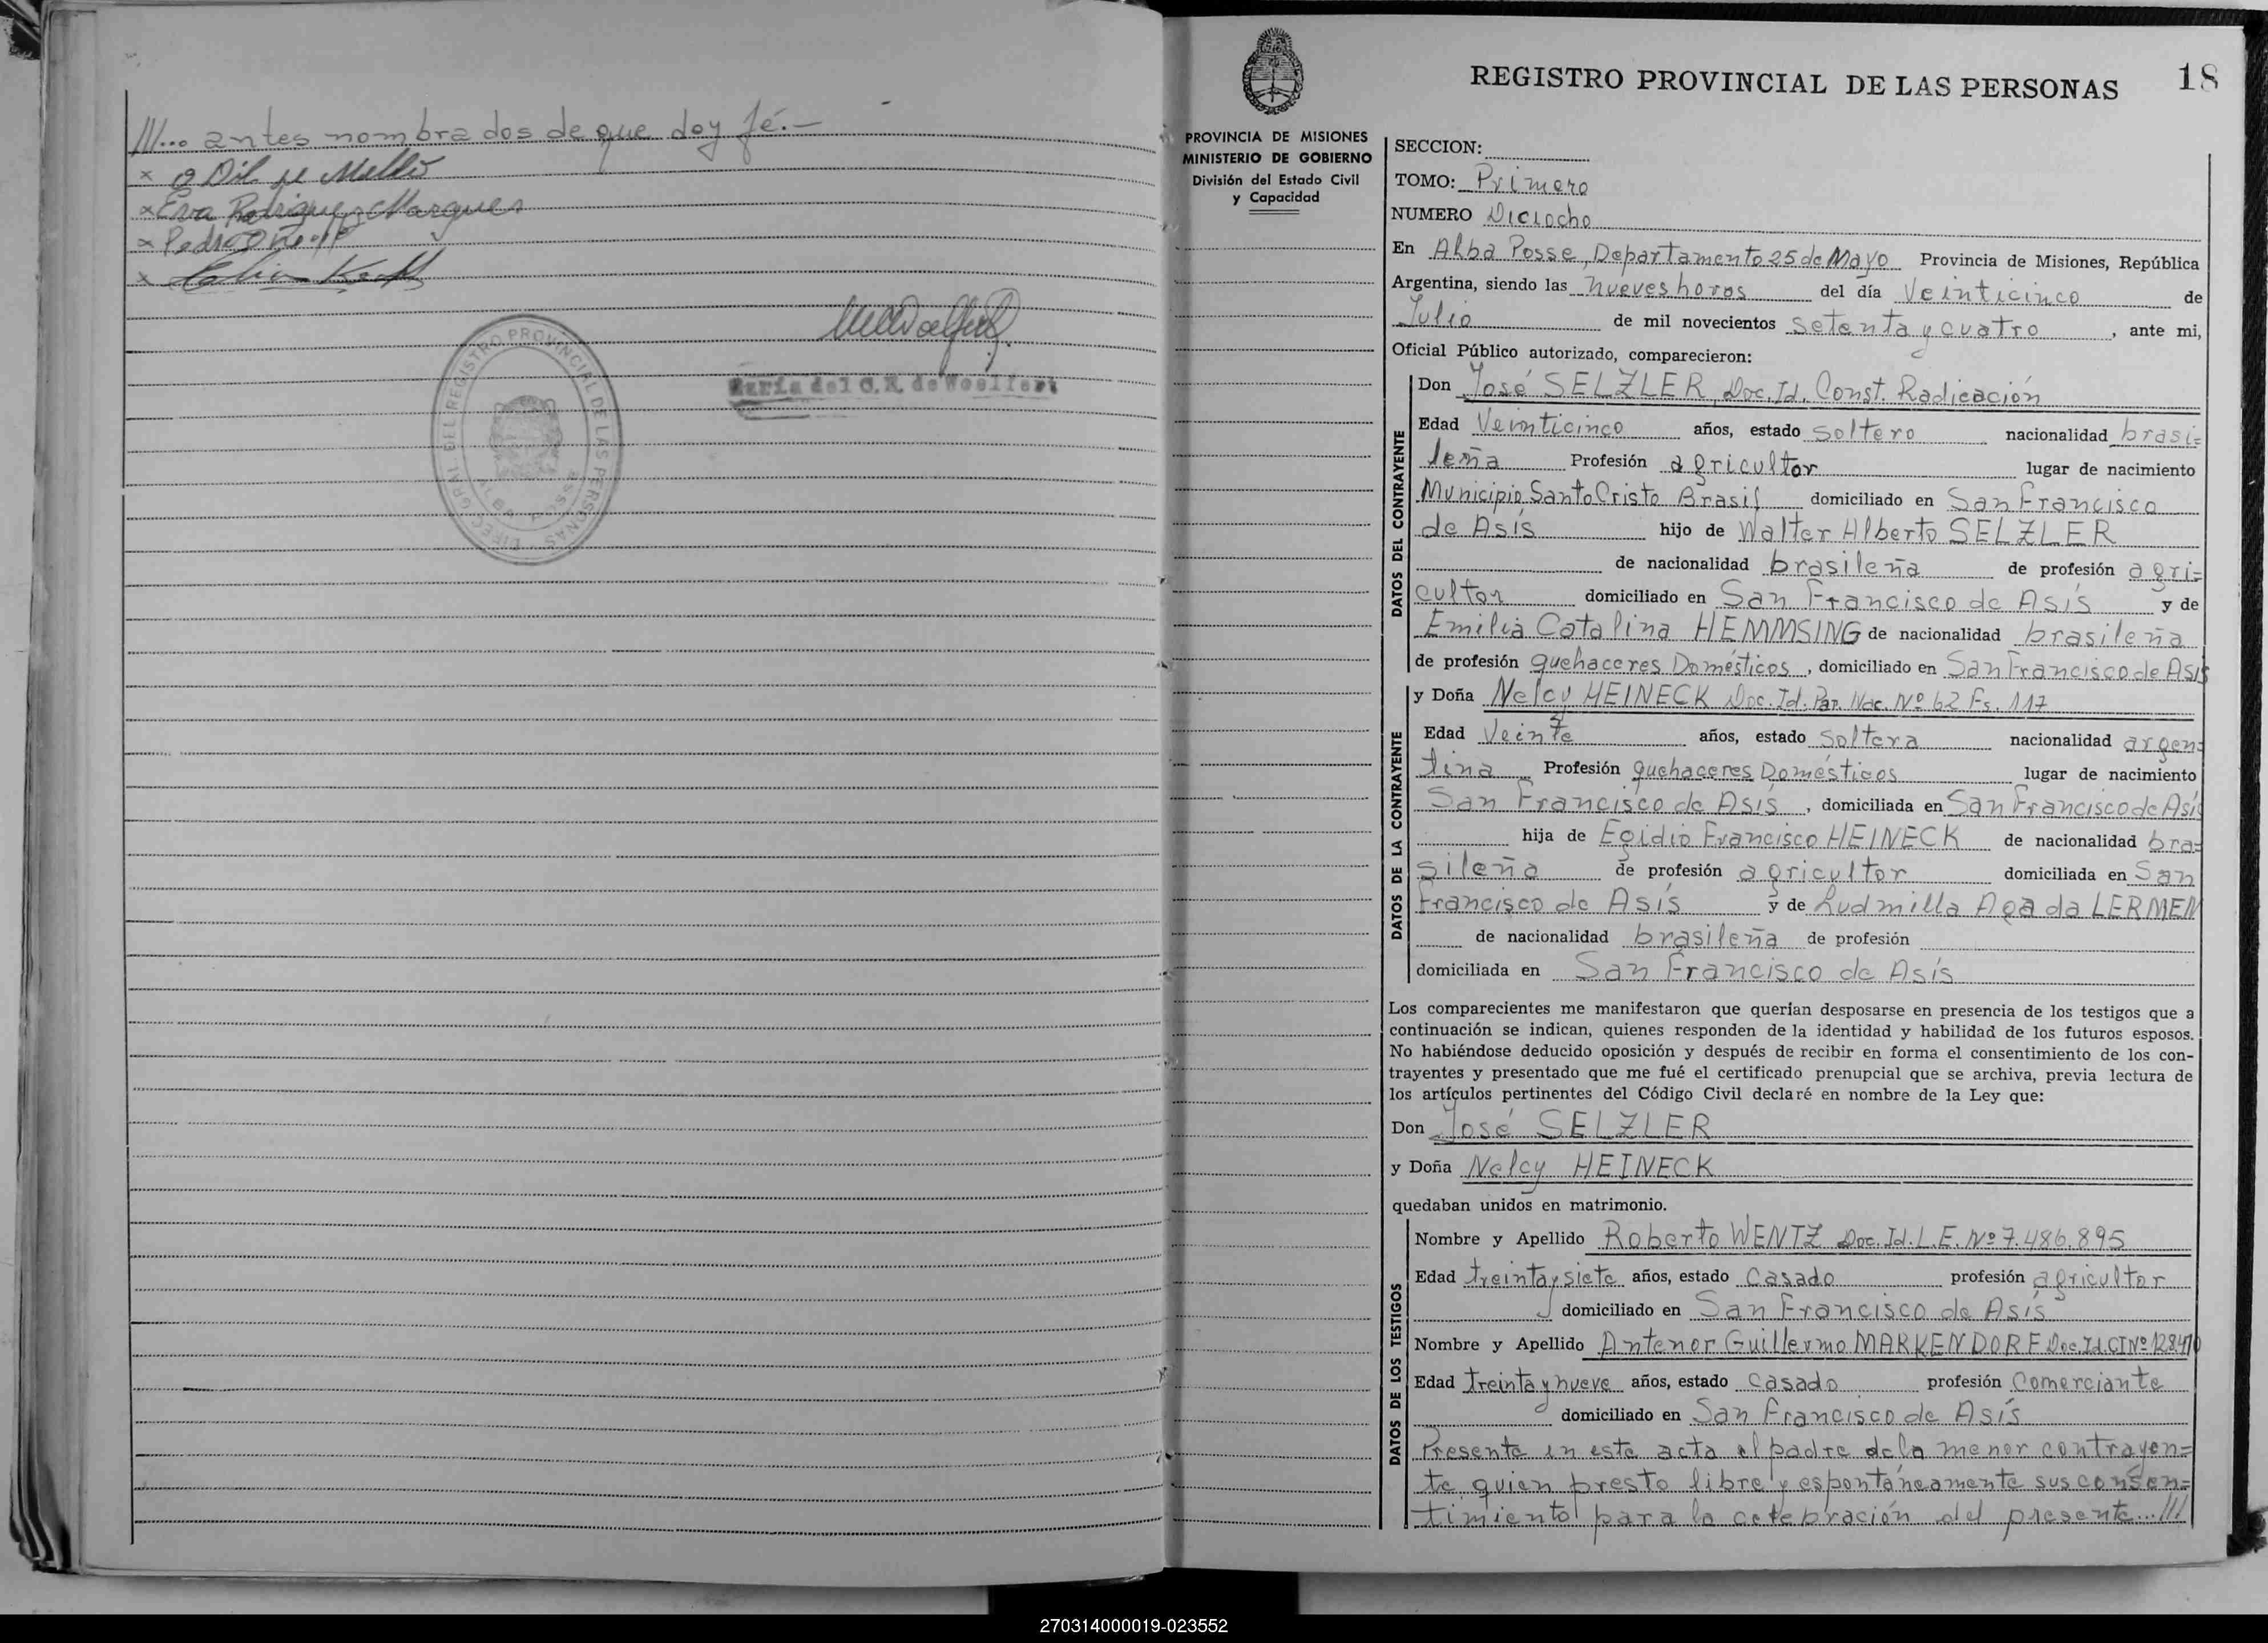 ///... antes nombrados de que doy fé.-
x
x Eva Rodriguez Marques
x Pedro
x
María del C.R. de Woelfert
DIREC. GRAL. DEL REGISTRO PROVINCIAL DE LAS PERSONAS
ALBA POSSE
REGISTRO PROVINCIAL DE LAS PERSONAS 18
PROVINCIA DE MISIONES
MINISTERIO DE GOBIERNO
División del Estado Civil
y Capacidad
SECCION:
TOMO: Primero
NUMERO Dieciocho
En Alba Posse, Departamento 25 de Mayo Provincia de Misiones, República
Argentina, siendo las nueves horas del día Veinticinco de
Julio de mil novecientos setenta y cuatro, ante mi,
Oficial Público autorizado, comparecieron:
DATOS DEL CONTRAYENTE
Don José SELZLER, Doc. Id. Const. Radicación
Edad Veinticinco años, estado soltero nacionalidad brasi=
leña Profesión agricultor lugar de nacimiento
Municipio Santo Cristo Brasil domiciliado en San Francisco
de Asís hijo de Walter Alberto SELZLER
de nacionalidad brasileña de profesión agri=
cultor domiciliado en San Francisco de Asís y de
Emilia Catalina HEMMSING de nacionalidad brasileña
de profesión quehaceres Domésticos, domiciliado en San Francisco de Asís
DATOS DE LA CONTRAYENTE
y Doña Nelcy HEINECK Doc. Id. Par. Nac. Nº 62 Fs. 117
Edad Veinte años, estado soltera nacionalidad argen=
tina Profesión quehaceres Domésticos lugar de nacimiento
San Francisco de Asís, domiciliada en San Francisco de Asís
hija de Egidio Francisco HEINECK de nacionalidad bra=
sileña de profesión agricultor domiciliada en San
Francisco de Asís y de Ludmilla Agada LERMEN
de nacionalidad brasileña de profesión
domiciliada en San Francisco de Asís
Los comparecientes me manifestaron que querían desposarse en presencia de los testigos que a
continuación se indican, quienes responden de la identidad y habilidad de los futuros esposos.
No habiéndose deducido oposición y después de recibir en forma el consentimiento de los con-
trayentes y presentado que me fué el certificado prenupcial que se archiva, previa lectura de
los artículos pertinentes del Código Civil declaré en nombre de la Ley que:
Don José SELZLER
y Doña Nelcy HEINECK
quedaban unidos en matrimonio.
DATOS DE LOS TESTIGOS
Nombre y Apellido Roberto WENTZ Doc. Id. L.E. Nº 7.486.895
Edad treinta y siete años, estado Casado profesión agricultor
domiciliado en San Francisco de Asís
Nombre y Apellido Antenor Guillermo MARKENDORF Doc. Id. CI Nº 128.410
Edad treinta y nueve años, estado casado profesión Comerciante
domiciliado en San Francisco de Asís
Presente en este acta el padre de la menor contrayen=
te quien presto libre y espontáneamente sus consen=
timiento para la celebración del presente...///
270314000019-023552